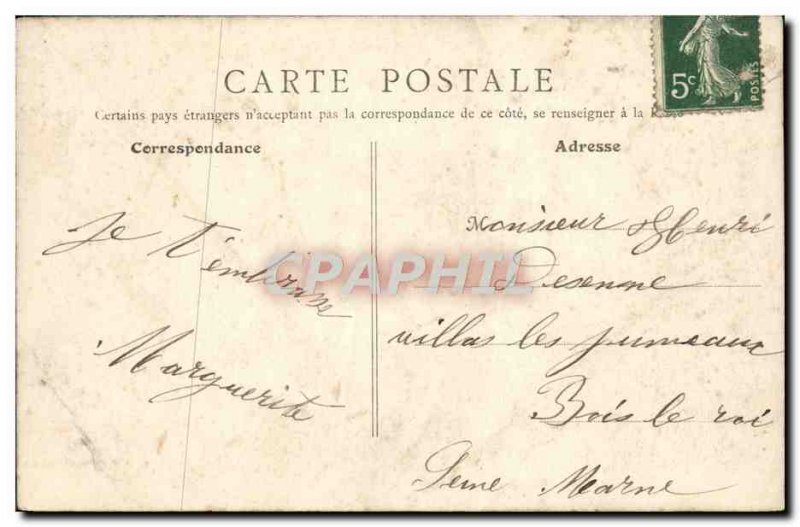 CARTE POSTALE
Certains pays étrangers n'acceptant pas la correspondance de ce côté, se renseigner à la
Correspondance
Adresse
Je t'embrasse
Marguerite
Monsieur Henri
villas les jumeaux
Bois le roi
Seine Marne
5c
POSTES
CPAPHIL